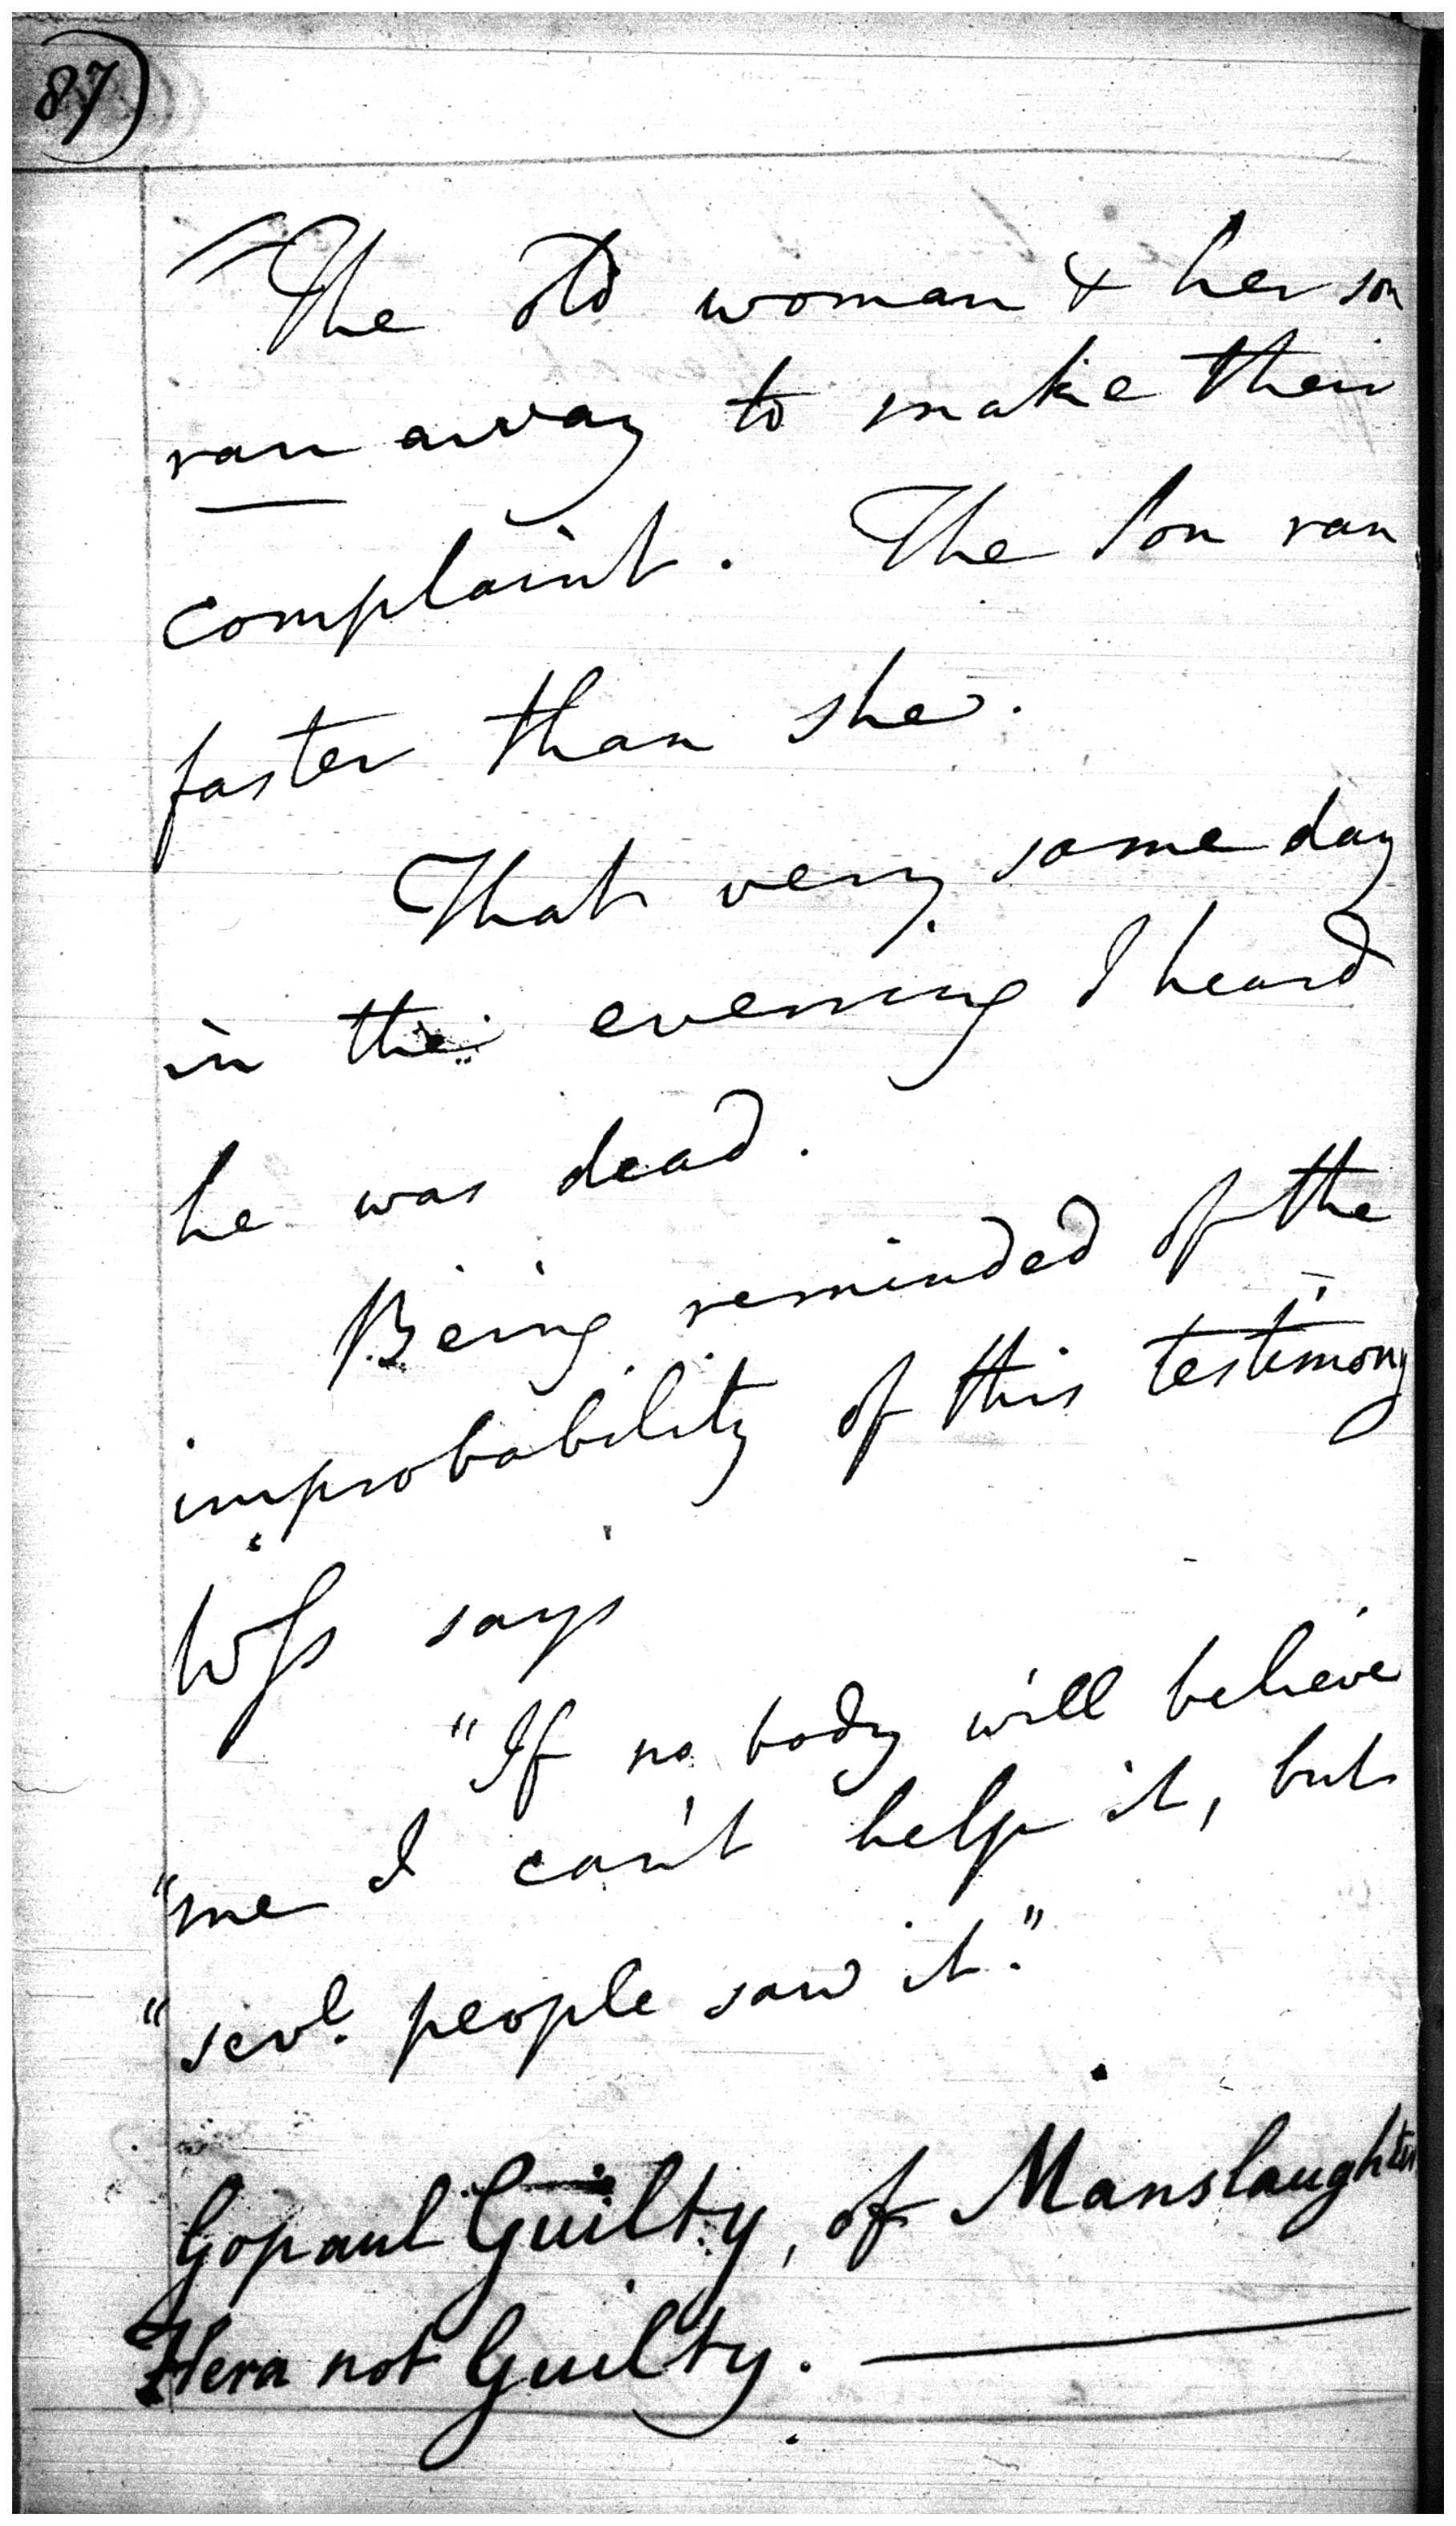 87)
The old woman & her son
ran away to make their
complaint. The Son ran
faster than she.
That very same day
in the evening I heard
he was dead.
Being reminded of the
improbability of this testimony
Wss says
"If no body will believe
"me I can't help it, but
"sevl. people saw it."
Gopaul Guilty, of Manslaughter
Hera not Guilty.